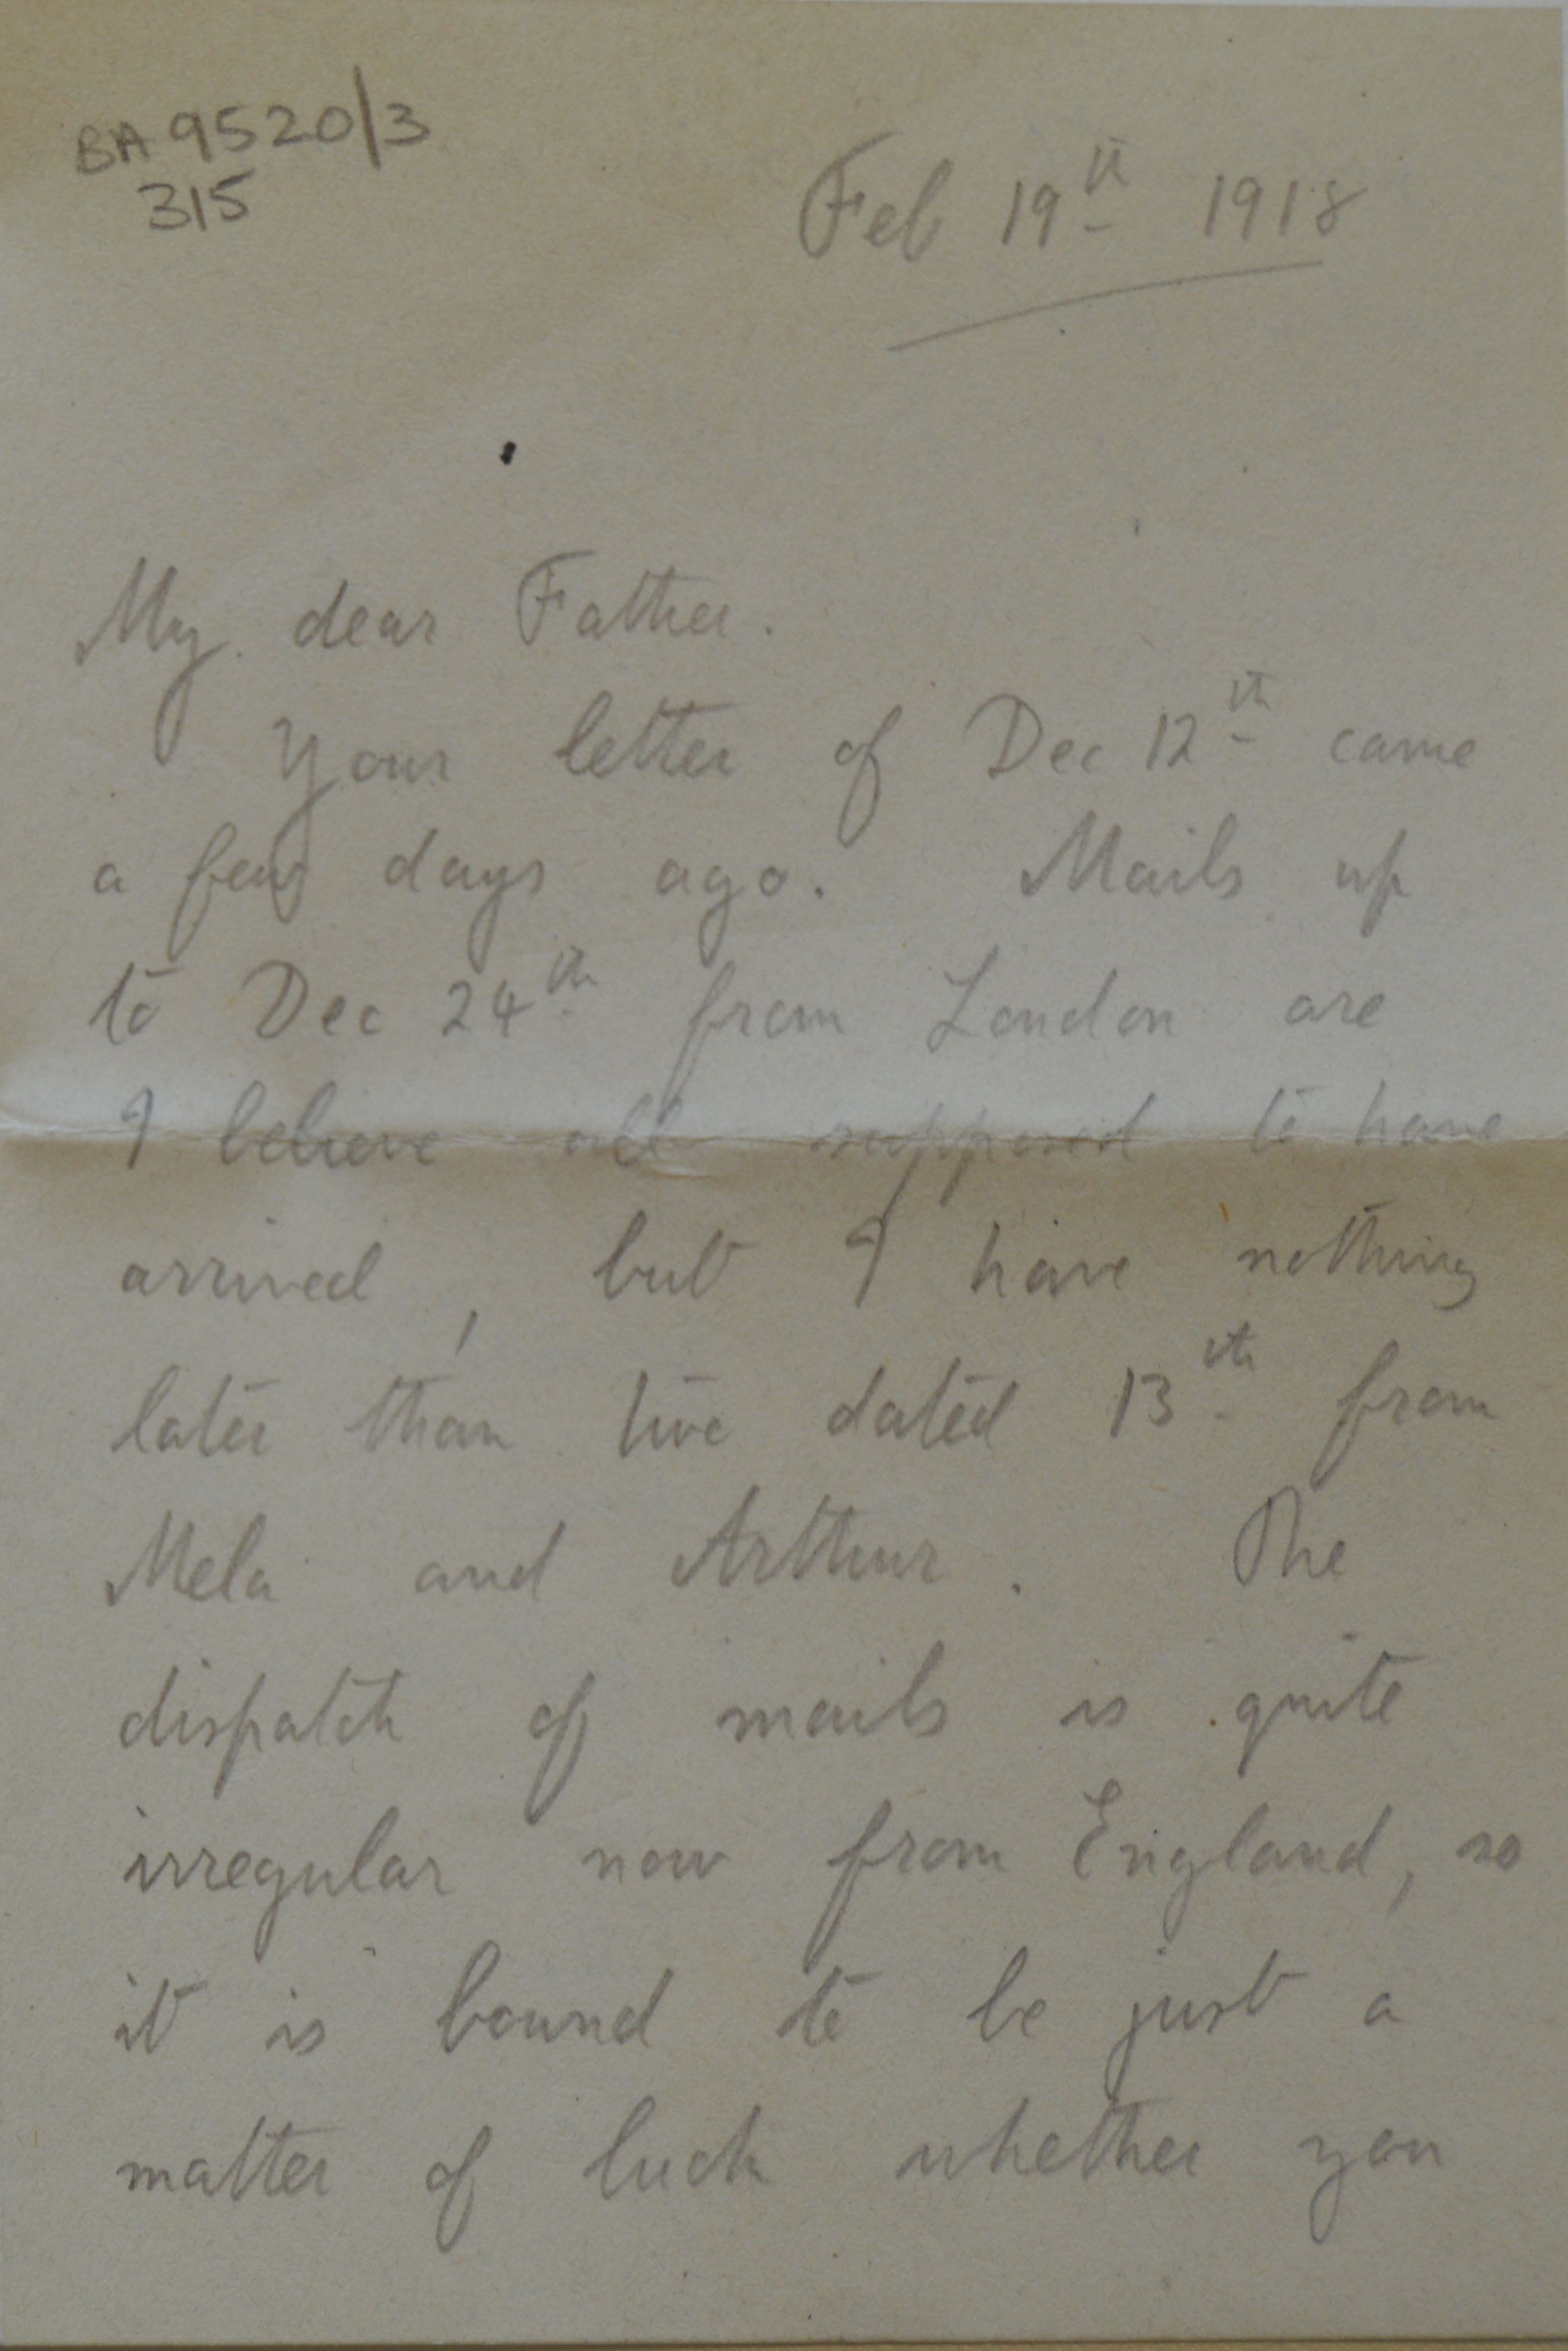 BA 9520/3
315
Feb 19th 1918
My dear Father.
Your letter of Dec 12th came
a few days ago. Mails up
to Dec 24th from London are
I believe all supposed to have
arrived, but I have nothing
later than two dated 13th from
Mela and Arthur. The
dispatch of mails is quite
irregular now from England, so
it is bound to be just a
matter of luck whether you